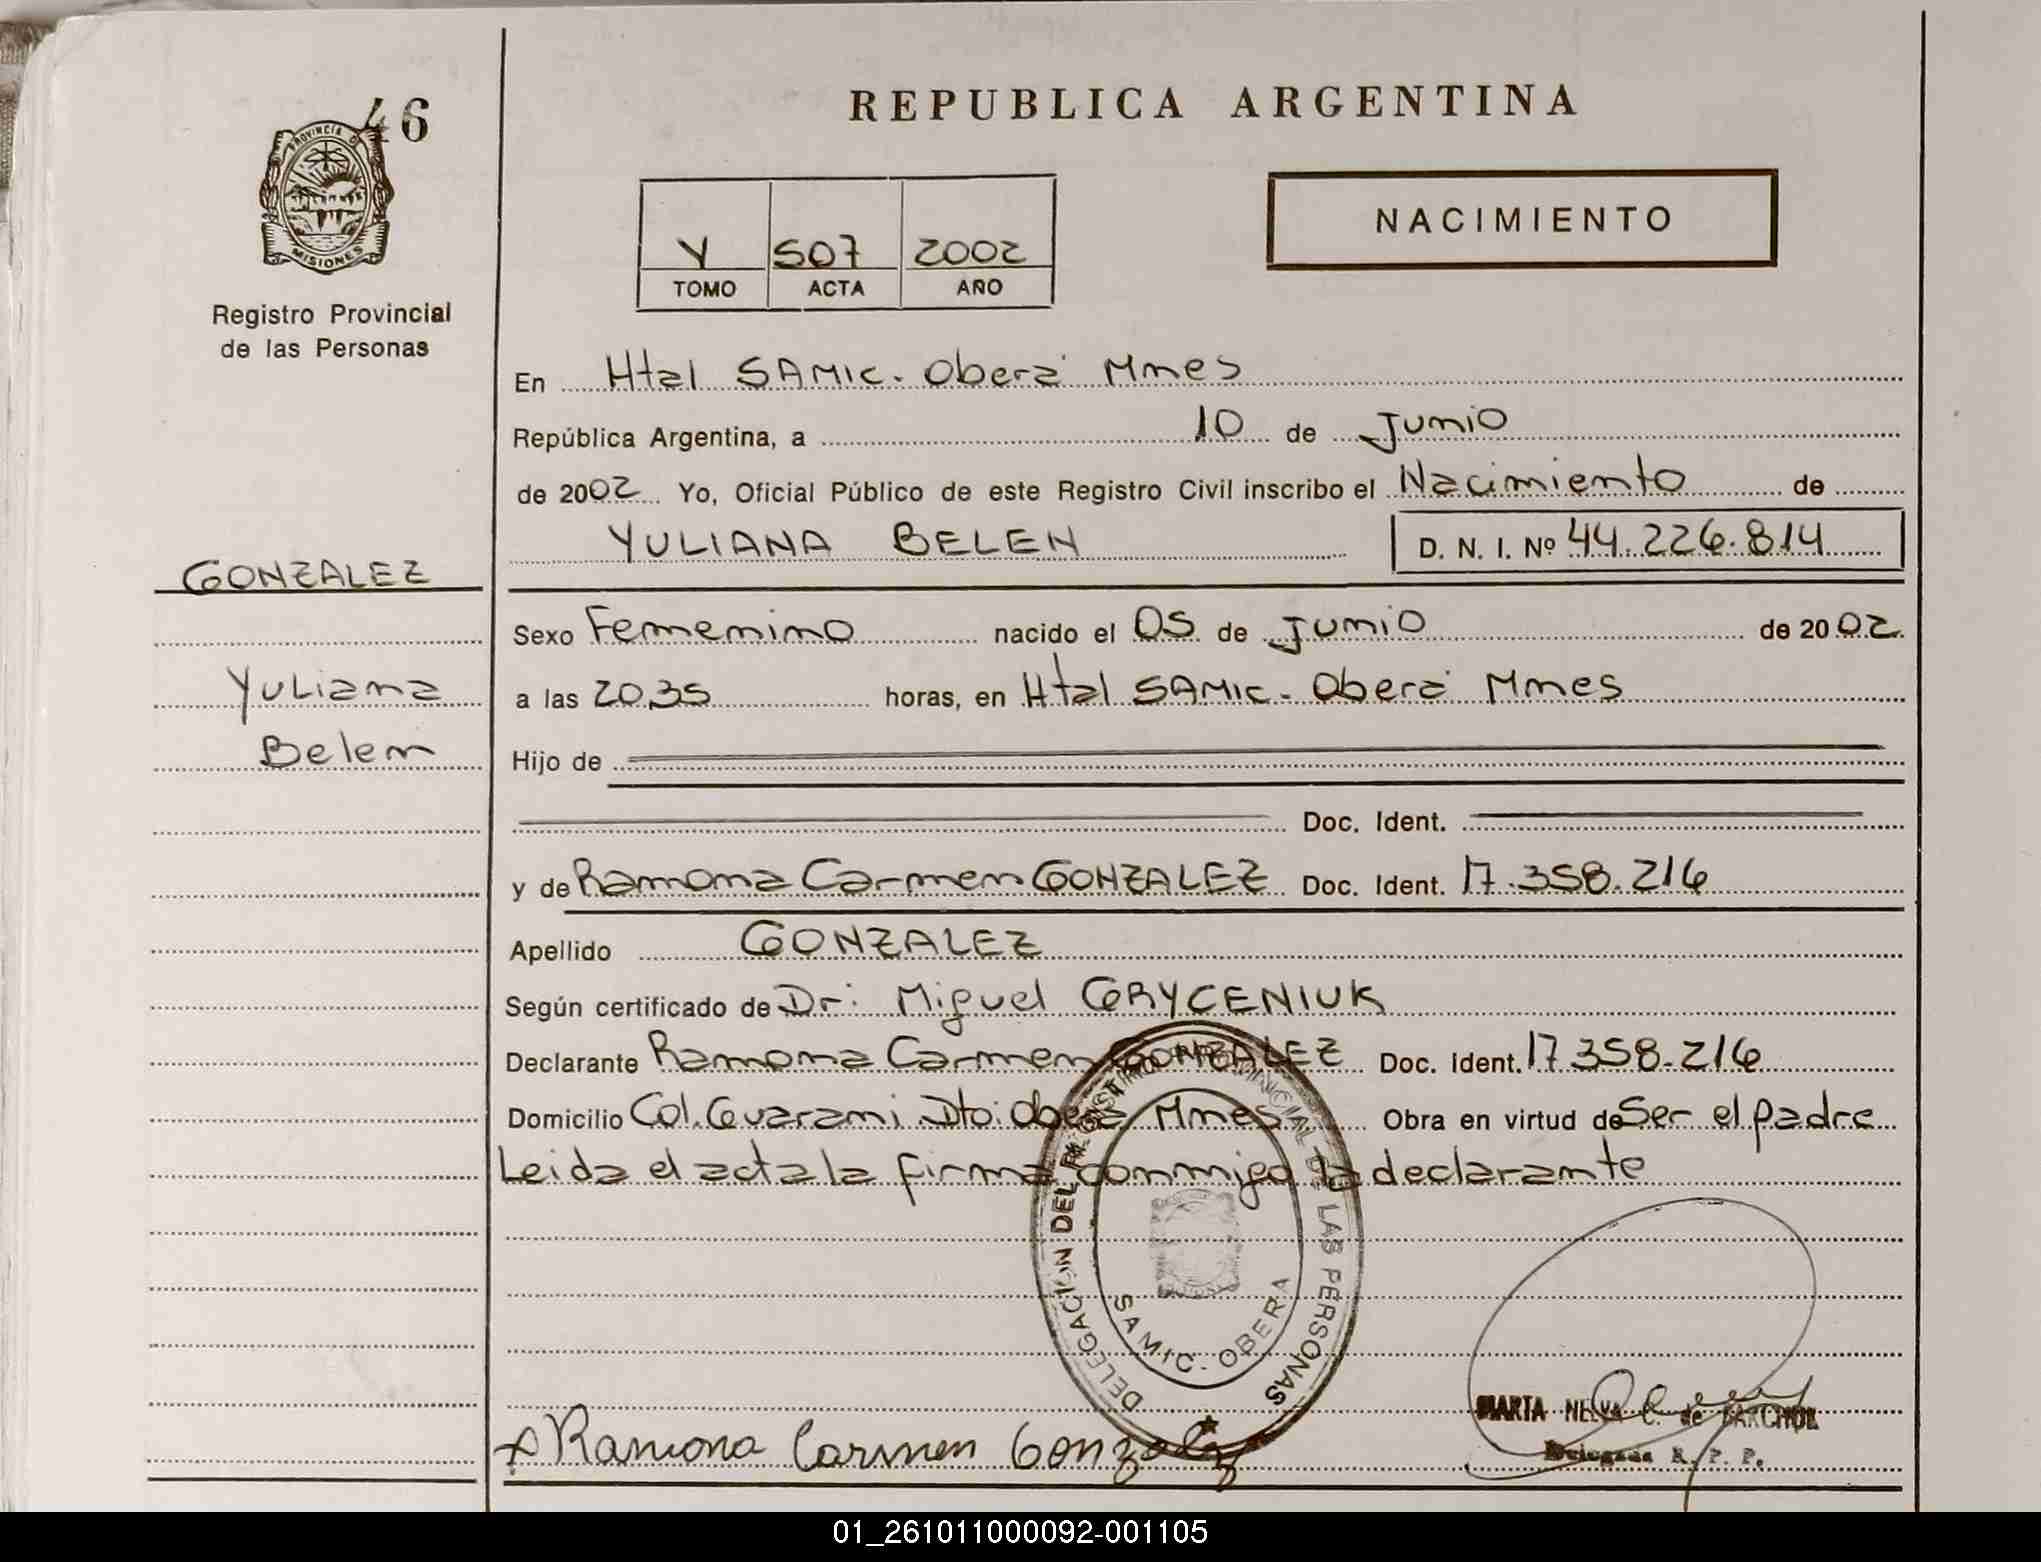 46
PROVINCIA D
MISIONES
Registro Provincial
de las Personas
REPUBLICA ARGENTINA
NACIMIENTO
V 507 2002
TOMO ACTA AÑO
En Htal SAMIC. Oberá Mnes
República Argentina, a 10 de Junio
de 2002 Yo, Oficial Público de este Registro Civil inscribo el Nacimiento de
YULIANA BELEN D. N. I. Nº 44.226.814
GONZALEZ
Yuliana
Belen
Sexo Femenino nacido el 05 de Junio de 2002.
a las 20,35 horas, en Htal SAMIC. Oberá Mnes
Hijo de
Doc. Ident.
y de Ramona Carmen GONZALEZ Doc. Ident. 17.358.216
Apellido GONZALEZ
Según certificado de Dr: Miguel GRYCENIUK
Declarante Ramona Carmen GONZALEZ Doc. Ident. 17.358.216
Domicilio Col. Guarani Dto: Obera Mnes Obra en virtud de Ser el padre
Leida el acta la firma conmigo la declarante
DELEGACION DEL REGISTRO PROVINCIAL DE LAS PERSONAS
SAMIC. OBERA
MARTA NELVA C. de
Delegada R. P. P.
Ramona Carmen Gonzalez
01_261011000092-001105